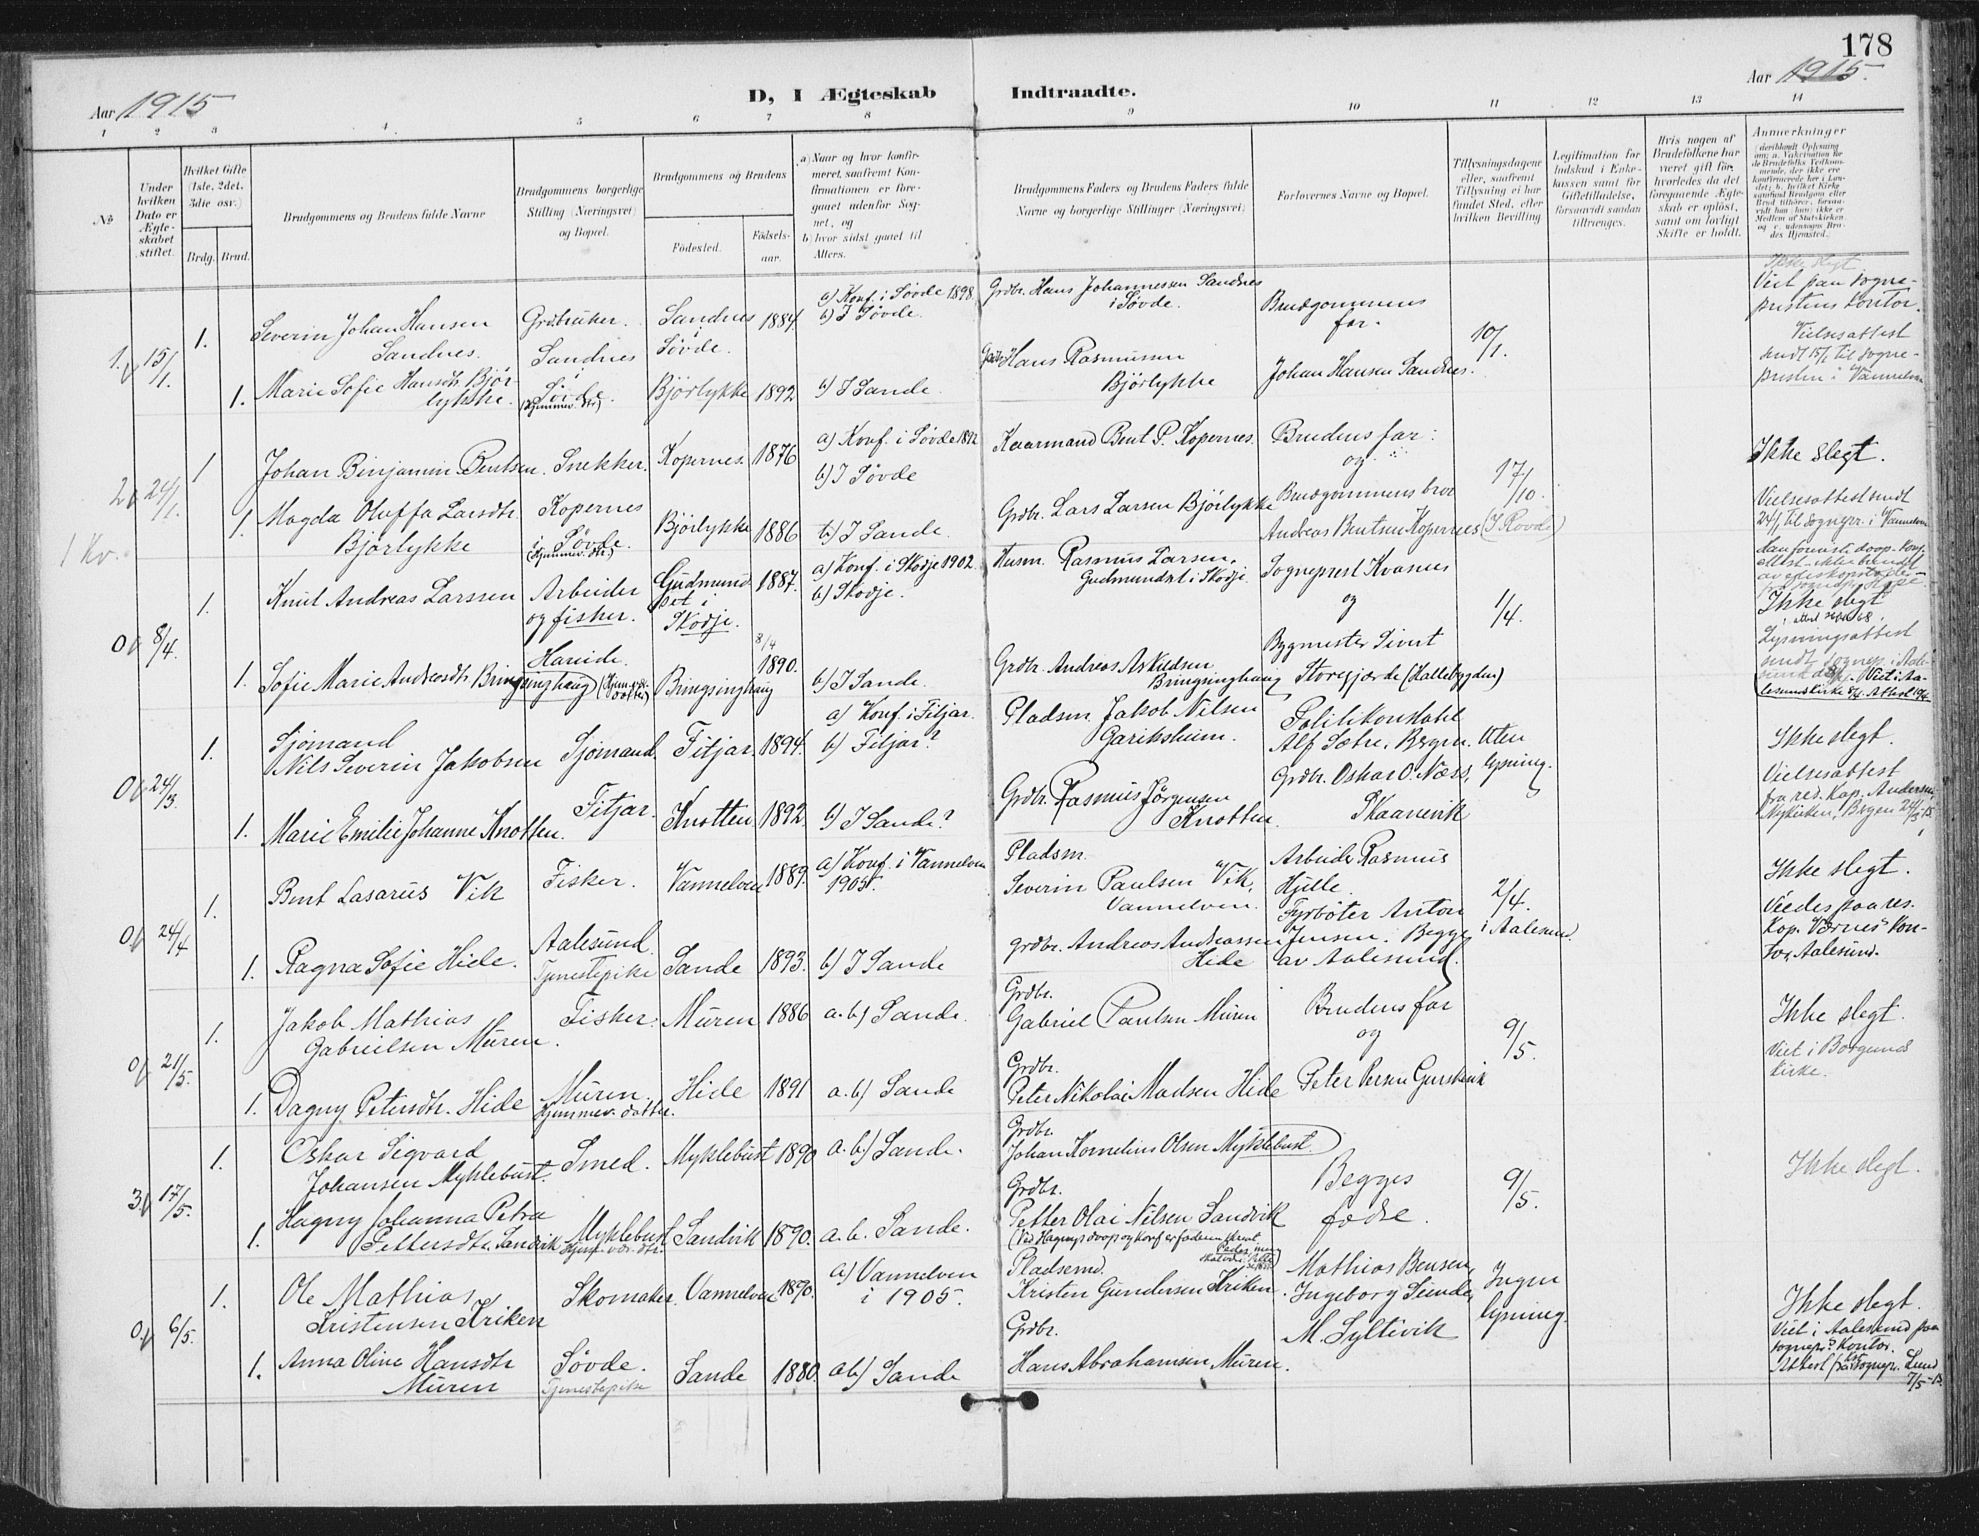 178
Aar 1915
D, I Ægteskab Indtraadte.
Aar 1915.
1 2 3 4 5 6 7 8 9 10 11 12 13 14
No
Under hvilken Dato er Ægteskabet stiftet.
Hvilket Gifte (1ste, 2det, 3die osv.)
Brdg. Brud.
Brudgommens og Brudens fulde Navne
Brudgommens borgerlige Stilling (Næringsvei) og Bopæl.
Brudgommens og Brudens
Fødested.
Fødselsaar.
a) Naar og hvor konfirmeret, saafremt Konfirmationen er foregaaet udenfor Sognet, og
b) hvor sidst gaaet til Alters.
Brudgommens Faders og Brudens Faders fulde Navne og borgerlige Stillinger (Næringsvei)
Forlovernes Navne og Bopæl.
Tillysningsdagene eller, saafremt Tillysning ei har fundet Sted, efter hvilken Bevilling
Legitimation for Indskud i Enkekassen samt for Giftetilladelse, forsaavidt saadan tiltrænges.
Hvis nogen af Brudefolkene har været gift før, hvorledes da det foregaaende Ægteskab er opløst, samt om lovligt Skifte er holdt.
Anmerkninger
1. 15/1. 1.
Severin Johan Hansen Sandnes.
Grdbruker. Sandnes i Søvde.
Sandnes i Søvde. 1884.
a) Konf. i Søvde 1898.
b) I Søvde.
Grdbr. Hans Johannessen Sandnes i Søvde.
Brudgommens far.
10/1.
Viet paa sogneprestens kontor.
Vielsesattest sendt 15/1 til sognepresten i Vannelven
1. Marie Sofie Hansdtr. Bjørlykke.
(Hjemmev. dtr.)
Bjørlykke 1892
b) I Sande.
Grdbr. Hans Rasmussen Bjørlykke
Johan Hansen Sandnes.
2 24/1. 1
Johan Binjamin Bentsen.
Snekker. Kopernes i Søvde.
Kopernes. 1876
a) Konf. i Søvde 1892
b) I Søvde
Kaarmand Bent P. Kopernes.
Brudens far og
17/10.
Ikke slegt.
Vielsesattest sendt 24/1 til sognepr. i Vannelven
1. Magda Oluffa Larsdtr. Bjørlykke
(Hjemmev. dtr.)
Bjørlykke 1886
b) I Sande.
Grdbr. Lars Larsen Bjørlykke
Brudgommens bror
Andreas Bentsen Kopernes (I Rovde)
1 Kv.
0 8/4. 1.
Knut Andreas Larssen
Arbeider og fisker. Hareide.
Gudmundset i Skodje. 1887.
a) Konf. i Skodje 1902.
b) Skodje.
Husm. Rasmus Larsen, Gudmundset i Skodje.
Sogneprest Kvasnes og
1/4.
Ikke slegt
1. Sofie Marie Andreasdtr. Bringsinghaug (Hjemmev. datter)
Bringsinghaug 8/4 1890.
b) I Sande.
Grdbr. Andreas Askildsen Bringsinghaug
Bygmester Sivert Storegjærde (Hallebygden)
Lysningsattest sendt sognep. i Aalesund
Viet i Aalesunds kirke 8/4.
0 24/3. 1.
Sjømand
Nils Severin Jakobsen
Sjømand. Fitjar.
Fitjar. 1894.
a) Konf. i Fitjar.
b) Fitjar?
Pladsm. Jakob Nilsen
Politikonstabel Alf Sætre, Bergen.
Uten lysning.
Ikke slegt.
Vielsesattest fra res. kap. Andersen Nykirken, Bergen 24/3-15
1. Marie Emilie Johanne Knotten.
Knotten 1892.
b) I Sande?
Grdbr. Rasmus Jørgensen Knotten.
Grdbr. Oskar O. Næss, Skaanevik
0 24/4 1.
Bent Lasarus Vik
Fisker. Aalesund.
Vannelven 1889.
a) Konf. i Vannelven 1905.
Pladsm. Severin Paulsen Vik, Vannelven.
Arbeider Rasmus Hjelle.
2/4. i Aalesund.
Ikke slegt.
Viedes paa res. kap. Værnes' kontor, Aalesund.
1. Ragna Sofie Hide.
Tjenestepike
Sande 1893.
b) I Sande
Grdbr. Andreas Andreassen Hide
Fyrbøter Anton Jensen. Begge av Aalesund.
0 21/5. 1.
Jakob Mathias Gabrielsen Muren.
Fisker. Muren.
Muren 1886
a. b) Sande.
Grdbr. Gabriel Paulsen Muren
Brudens far og
9/5.
Ikke slegt.
Viet i Borgunds kirke.
1. Dagny Petersdtr. Hide
Hjemmev. datter.
Hide 1891
a. b) Sande
Grdbr. Peter Nikolai Madsen Hide
3. 17/5. 1.
Oskar Sigvard Johansen Myklebust.
Smed. Myklebust
Myklebust 1890
a. b) Sande.
Grdbr. Johan Kornelius Olsen Myklebust.
Begges fædre.
9/5.
Ikke slegt.
1. Hagny Johanna Petra Pettersdtr. Sandvik
Sandvik 1890.
a. b. Sande.
Grdbr. Petter Olai Nilsen Sandvik
0 6/5. 1.
Ole Mathias Kristensen Kriken
Skomaker. Søvde.
Vannelven 1890.
a) Vannelven i 1905.
Pladsemd. Kristen Gundersen Kriken.
Mathias Bensen,
Ingen lysning.
Ikke slegt.
Viet i Aalesund paa sognepr.s kontor.
1. Anna Oline Hansdtr Muren
Tjenestepike
Sande 1880.
a b) Sande
Grdbr. Hans Abrahamsen Muren.
M. Syltevik
7/5-15.